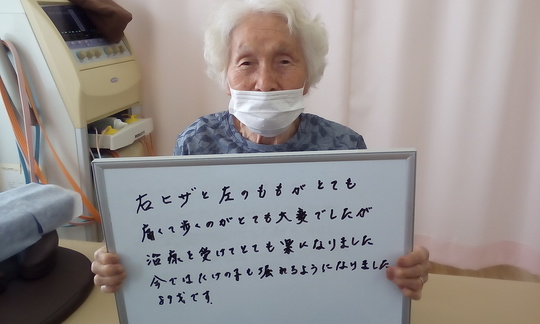 右ヒザと左のももがとても
痛くて歩くのがとても大変でしたが
治療を受けてとても楽になりました
今ではたけの子も掘れるようになりました
89才です。